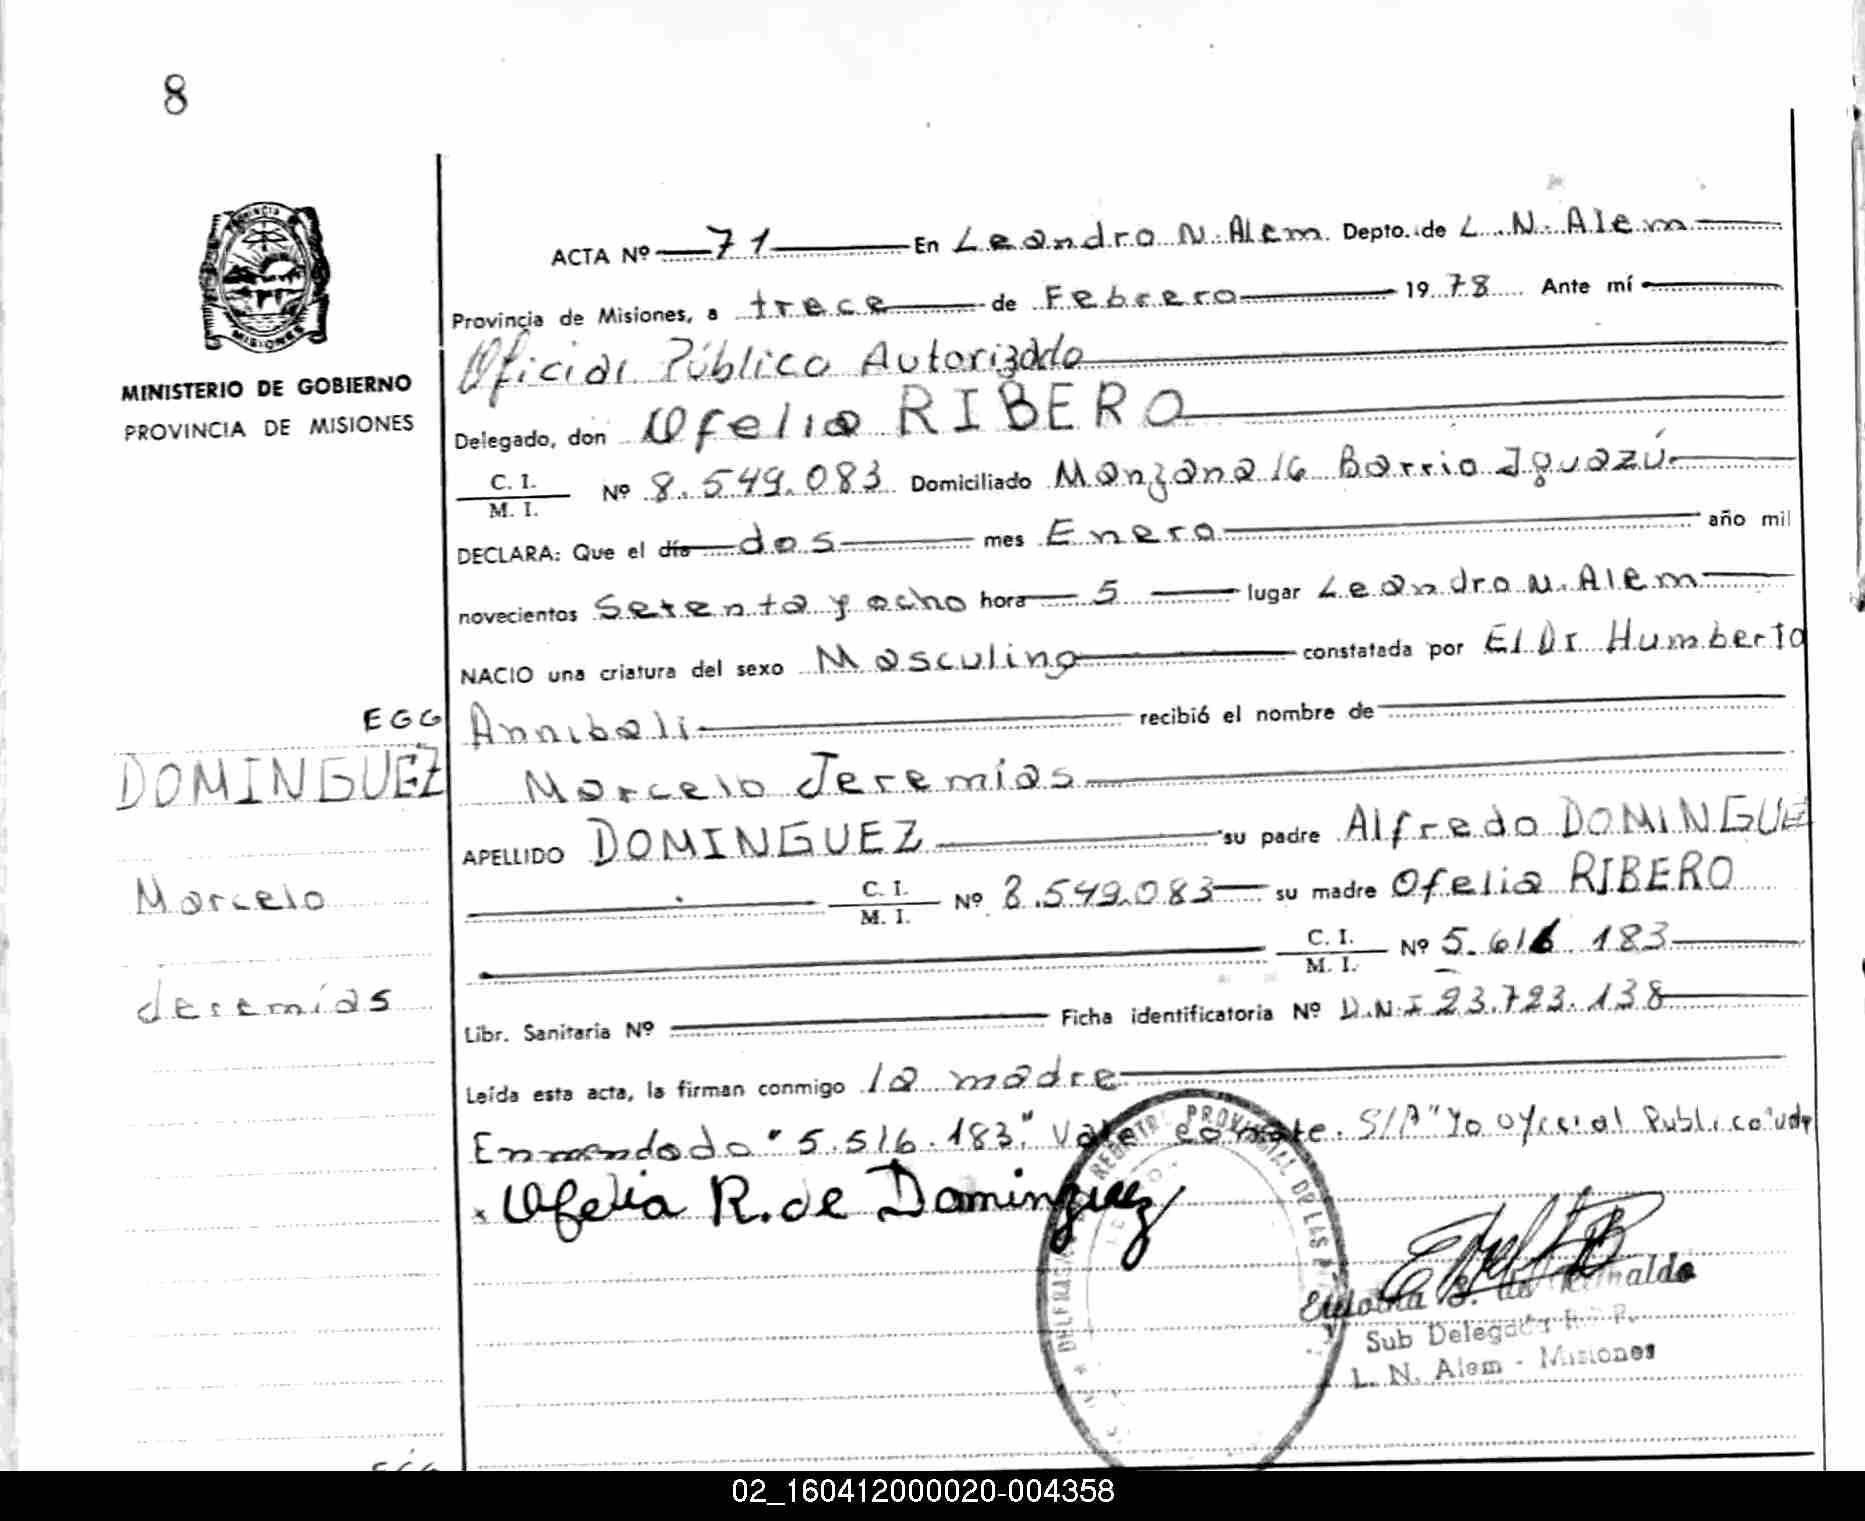 8
PROVINCIA
MISIONES
MINISTERIO DE GOBIERNO
PROVINCIA DE MISIONES
ACTA Nº 71 En Leandro N. Alem Depto. de L. N. Alem
Provincia de Misiones, a trece de Febrero 1978 Ante mí
Oficial Público Autorizado
Delegado, don Ofelia RIBERO
C. I.
M. I.
Nº 8.549.083 Domiciliado Manzana 16 Barrio Iguazú.
DECLARA: Que el día dos mes Enero año mil
novecientos Setenta y ocho hora 5 lugar Leandro N. Alem
NACIO una criatura del sexo Masculino constatada por El Dr Humberto
EGG
Annibali recibió el nombre de
DOMINGUEZ
Marcelo Jeremias
APELLIDO DOMINGUEZ su padre Alfredo DOMINGUE
Marcelo
C. I.
M. I.
Nº 8.549.083 su madre Ofelia RIBERO
C. I.
M. I.
Nº 5. 183
Jeremías
Libr. Sanitaria Nº Ficha identificatoria Nº D.N.I 23.723.138
Leída esta acta, la firman conmigo la madre
Enmendado "5.516.183." Vale conste. S/R "Yo Oficial Publico"
Ofelia R. de Dominguez
REGISTRO PROVINCIAL DE LAS
Sub Delegada R. P.
L. N. Alem - Misiones
02_160412000020-004358